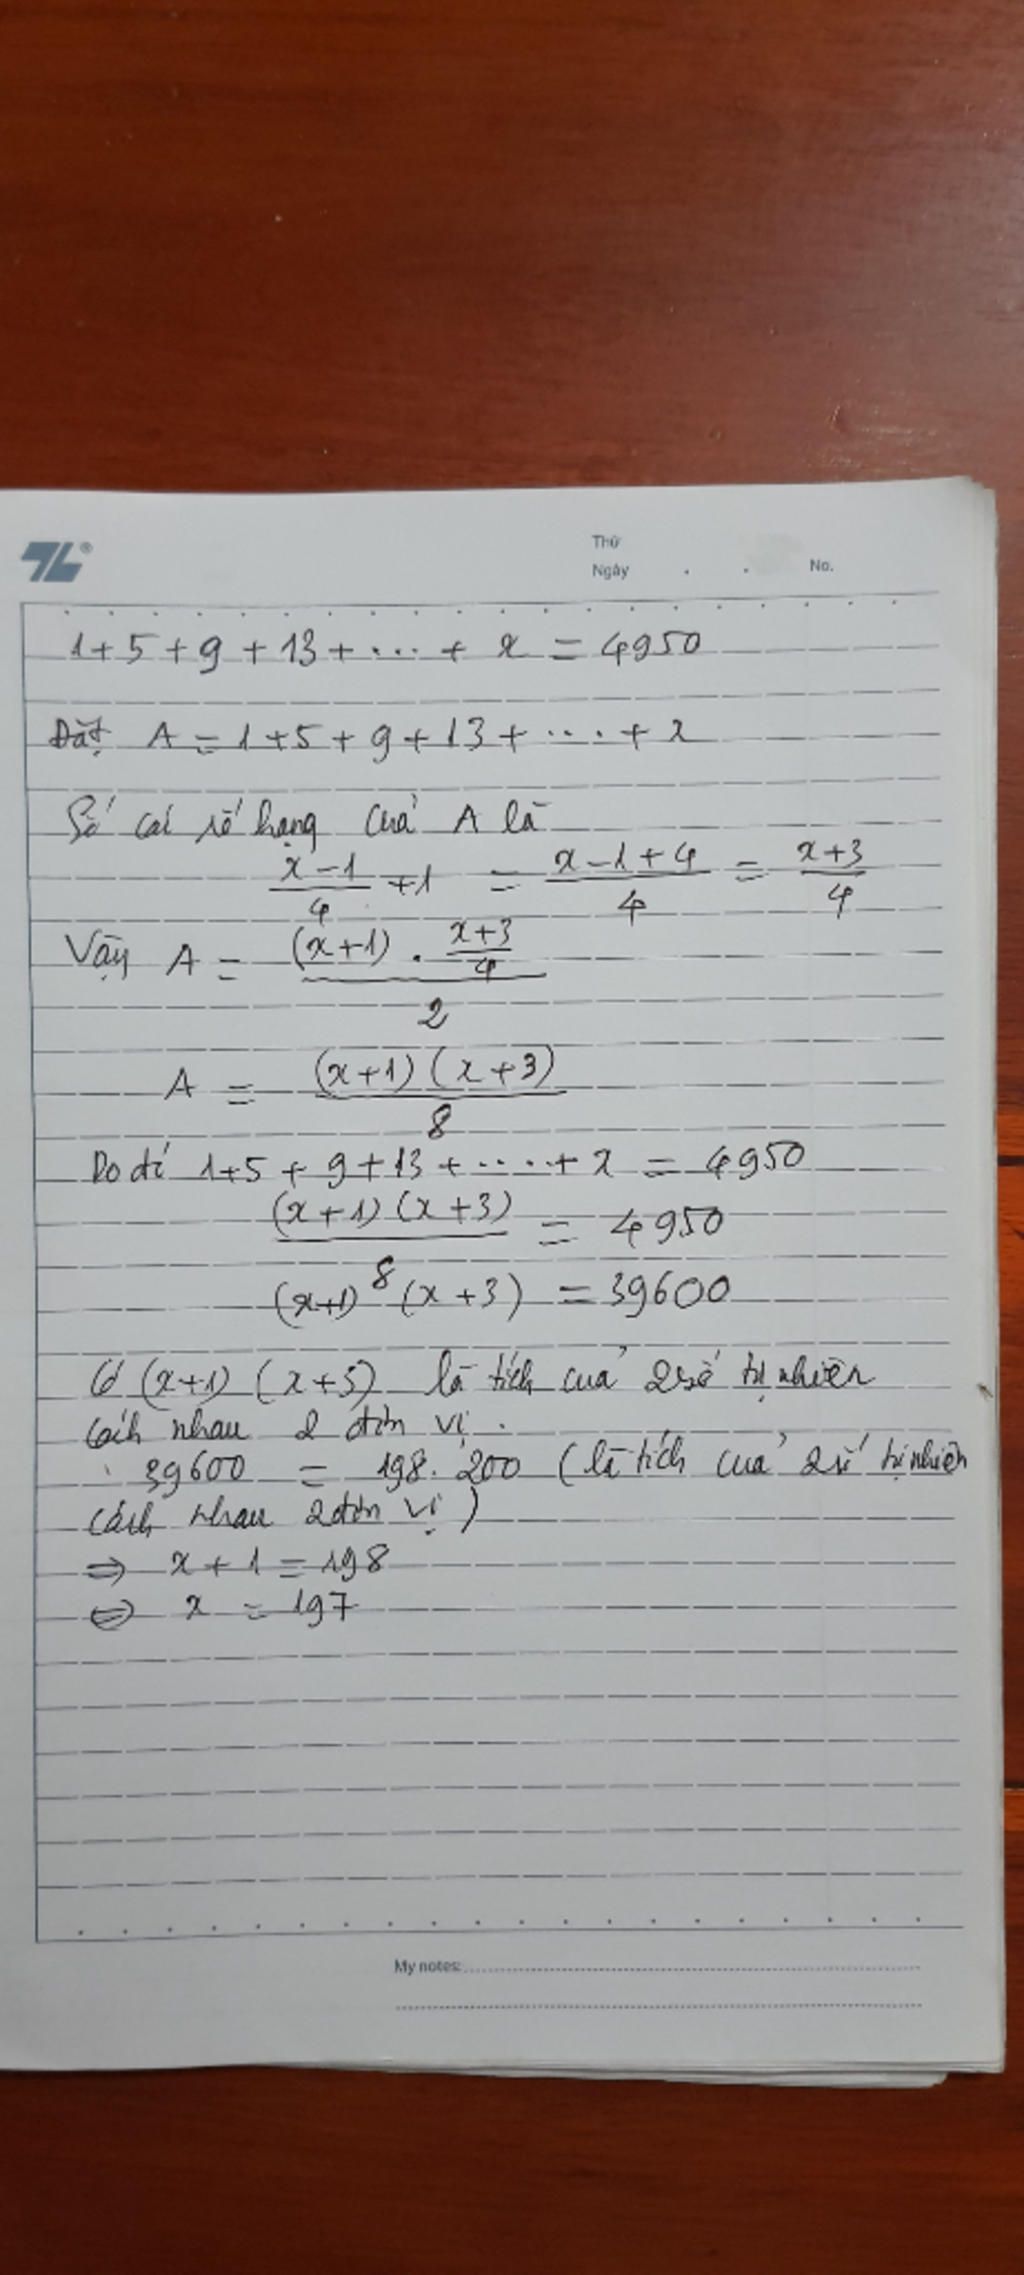 TL®
Thứ
Ngày . . No.
1 + 5 + 9 + 13 + .... + x = 4950
Đặt A = 1 + 5 + 9 + 13 + .... + x
Số các số hạng của A là
(x-1)/4 + 1 = (x-1+4)/4 = (x+3)/4
Vậy A = ((x+1) . (x+3)/4)/2
A = ((x+1)(x+3))/8
Do đó 1+5 + 9 + 13 + ..... + x = 4950
((x+1)(x+3))/8 = 4950
(x+1)(x+3) = 39600
Có (x+1) (x+3) là tích của 2 số tự nhiên
cách nhau 2 đơn vị.
39600 = 198. 200 (là tích của 2 số tự nhiên
cách nhau 2 đơn vị)
⇒ x + 1 = 198
⇔ x = 197
My notes: